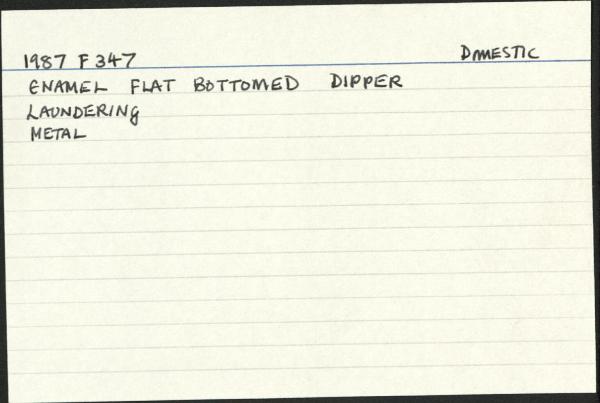 1987 F 347 DMESTIC
ENAMEL FLAT BOTTOMED DIPPER
LAUNDERING
METAL